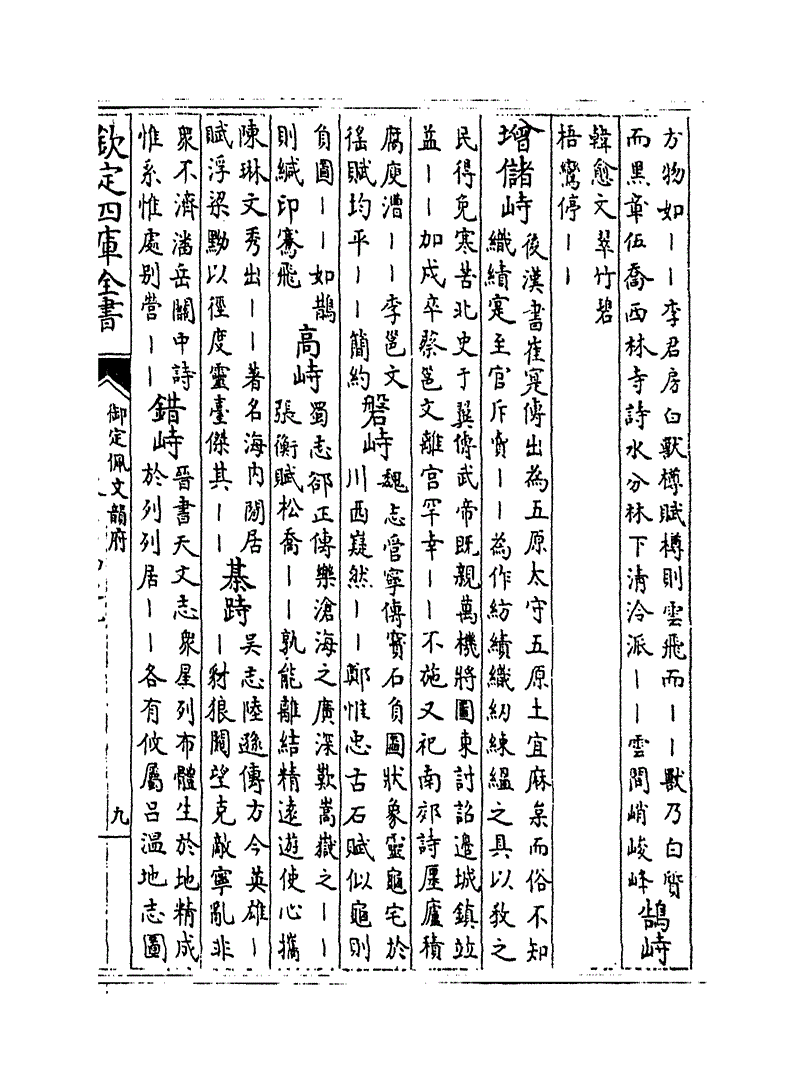 方物如丨丨李君房白獸樽賦樽則雲飛而丨丨獸乃白質
而黑章伍喬西林寺詩水分林下清泠派丨丨雲間峭峻峰
鵠峙
韓愈文翠竹碧
梧鸞停丨丨
增儲峙
後漢書崔寔傳出為五原太守五原土宜麻枲而俗不知
織績寔至官斥賣丨丨為作紡績織紉練緼之具以教之
民得免寒苦北史于翼傳武帝既親萬機將圖東討詔邊城鎮竝
益丨丨加戍卒蔡邕文離宫罕幸丨丨不施又祀南郊詩廛廬積
腐庾漕丨丨李邕文
徭賦均平丨丨簡約
磐峙
魏志管寧傳寶石負圖狀象靈龜宅於
川西嶷然丨丨鄭惟忠古石賦似龜則
負圖丨丨如鵲
則緘印騫飛
高峙
蜀志郤正傳樂滄海之廣深歎嵩嶽之丨丨
張衡賦松喬丨丨孰能離結精遠遊使心攜
陳琳文秀出丨丨著名海内閒居
賦浮梁黝以徑度靈臺傑其丨丨
棊跱
吳志陸遜傳方今英雄丨
丨豺狼闚望克敵寧亂非
衆不濟潘岳關中詩
惟系惟處别營丨丨
錯峙
晉書天文志衆星列布體生於地精成
於列列居丨丨各有攸屬呂温地志圖
欽定四庫全書
御定佩文韻府
九